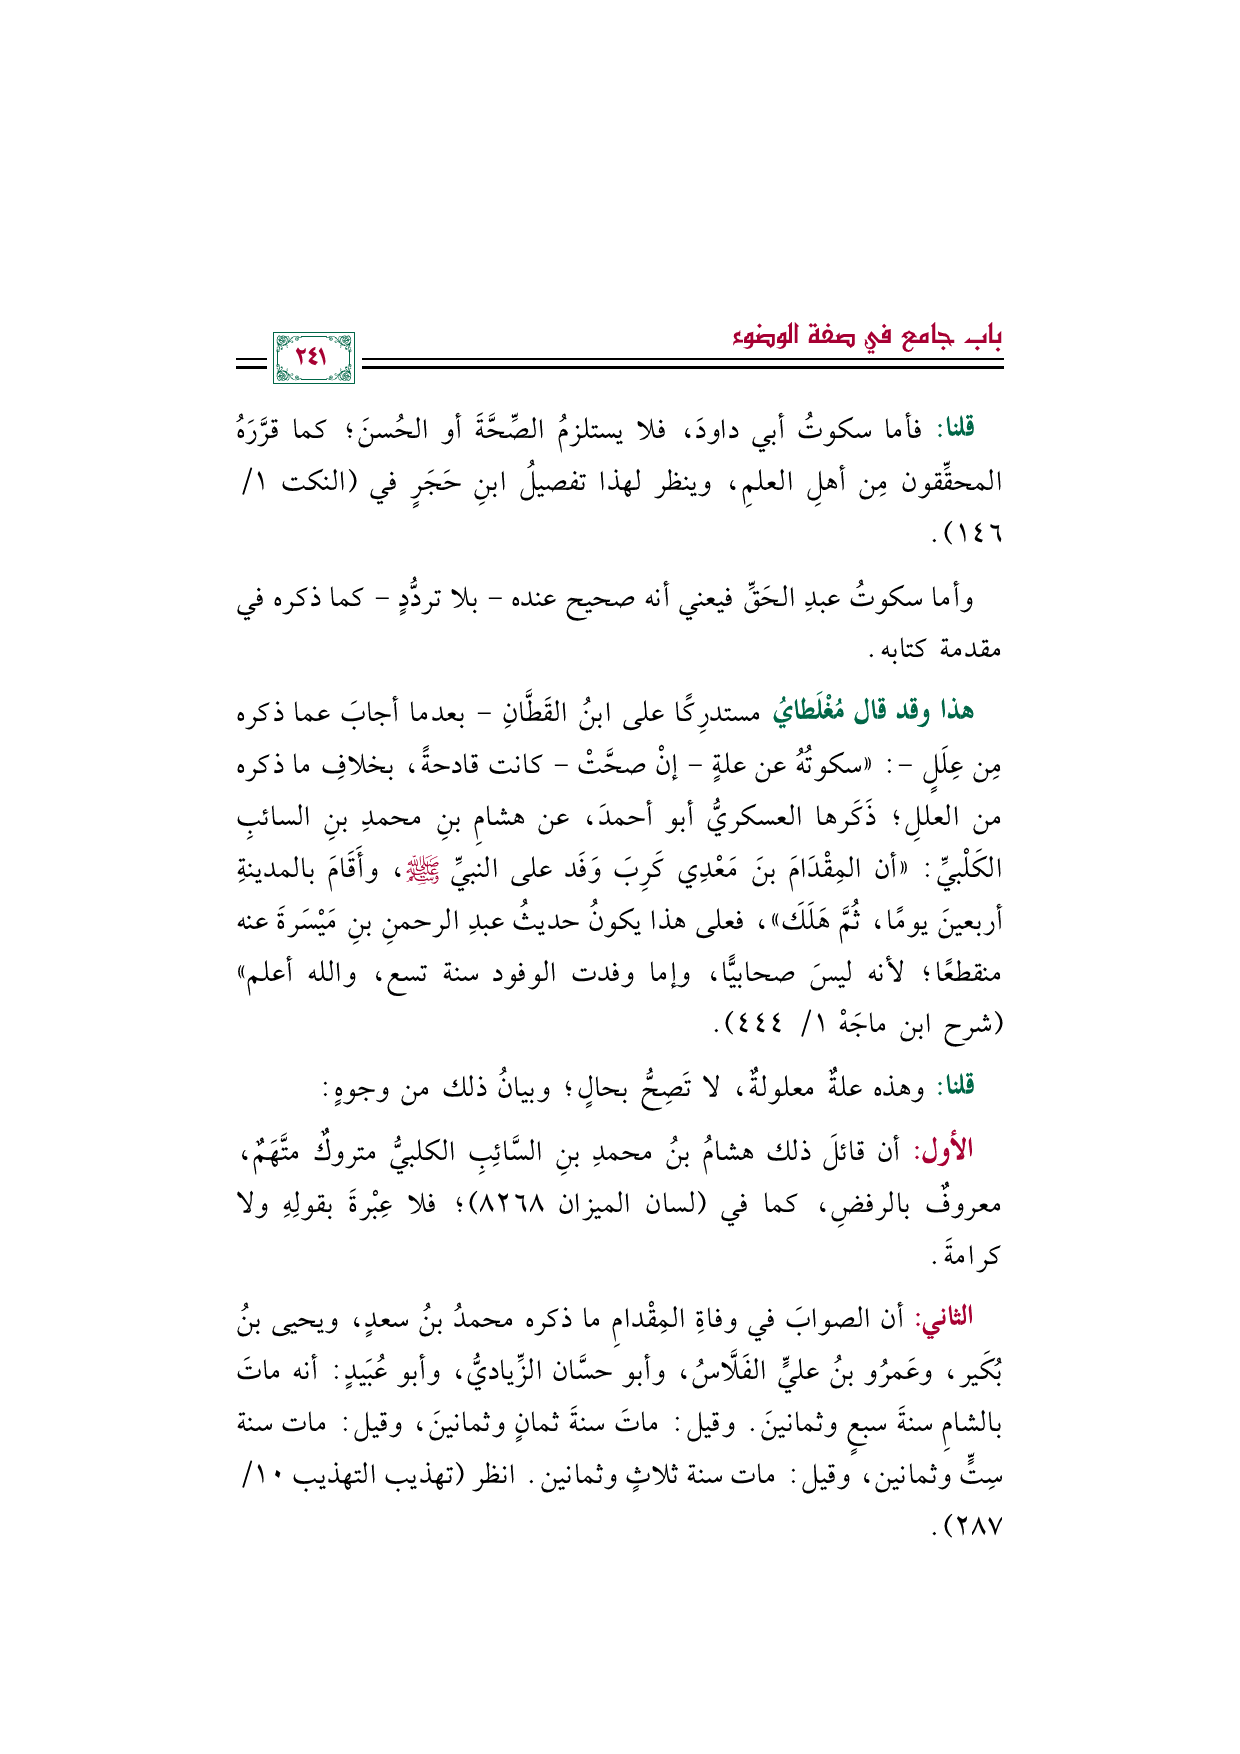 باب جامع في صفة الوضوء
٢٤١
قلنا: فأما سكوتُ أبي داودَ، فلا يستلزمُ الصِّحَّةَ أو الحُسنَ؛ كما قرَّرَهُ
المحقِّقون مِن أهلِ العلمِ، وينظر لهذا تفصيلُ ابنِ حَجَرٍ في (النكت ١/
١٤٦).
وأما سكوتُ عبدِ الحَقِّ فيعني أنه صحيح عنده - بلا تردُّدٍ - كما ذكره في
مقدمة كتابه.
هذا وقد قال مُغْلَطايُ مستدرِكًا على ابنُ القَطَّانِ - بعدما أجابَ عما ذكره
مِن عِلَلٍ -: «سكوتُهُ عن علةٍ - إنْ صحَّتْ - كانت قادحةً، بخلافِ ما ذكره
من العللِ؛ ذَكَرها العسكريُّ أبو أحمدَ، عن هشامِ بنِ محمدِ بنِ السائبِ
الكَلْبيِّ: «أن المِقْدَامَ بنَ مَعْدِي كَرِبَ وَفَد على النبيِّ ﷺ، وأَقَامَ بالمدينةِ
أربعينَ يومًا، ثُمَّ هَلَكَ»، فعلى هذا يكونُ حديثُ عبدِ الرحمنِ بنِ مَيْسَرةَ عنه
منقطعًا؛ لأنه ليسَ صحابيًّا، وإما وفدت الوفود سنة تسع، والله أعلم»
(شرح ابن ماجَهْ ١/ ٤٤٤).
قلنا: وهذه علةٌ معلولةٌ، لا تَصِحُّ بحالٍ؛ وبيانُ ذلك من وجوهٍ:
الأول: أن قائلَ ذلك هشامُ بنُ محمدِ بنِ السَّائِبِ الكلبيُّ متروكٌ متَّهَمٌ،
معروفٌ بالرفضِ، كما في (لسان الميزان ٨٢٦٨)؛ فلا عِبْرةَ بقولِهِ ولا
كرامةَ.
الثاني: أن الصوابَ في وفاةِ المِقْدامِ ما ذكره محمدُ بنُ سعدٍ، ويحيى بنُ
بُكَير، وعَمرُو بنُ عليٍّ الفَلَّاسُ، وأبو حسَّان الزِّياديُّ، وأبو عُبَيدٍ: أنه ماتَ
بالشامِ سنةَ سبعٍ وثمانينَ. وقيل: ماتَ سنةَ ثمانٍ وثمانينَ، وقيل: مات سنة
سِتٍّ وثمانين، وقيل: مات سنة ثلاثٍ وثمانين. انظر (تهذيب التهذيب ١٠/
٢٨٧).